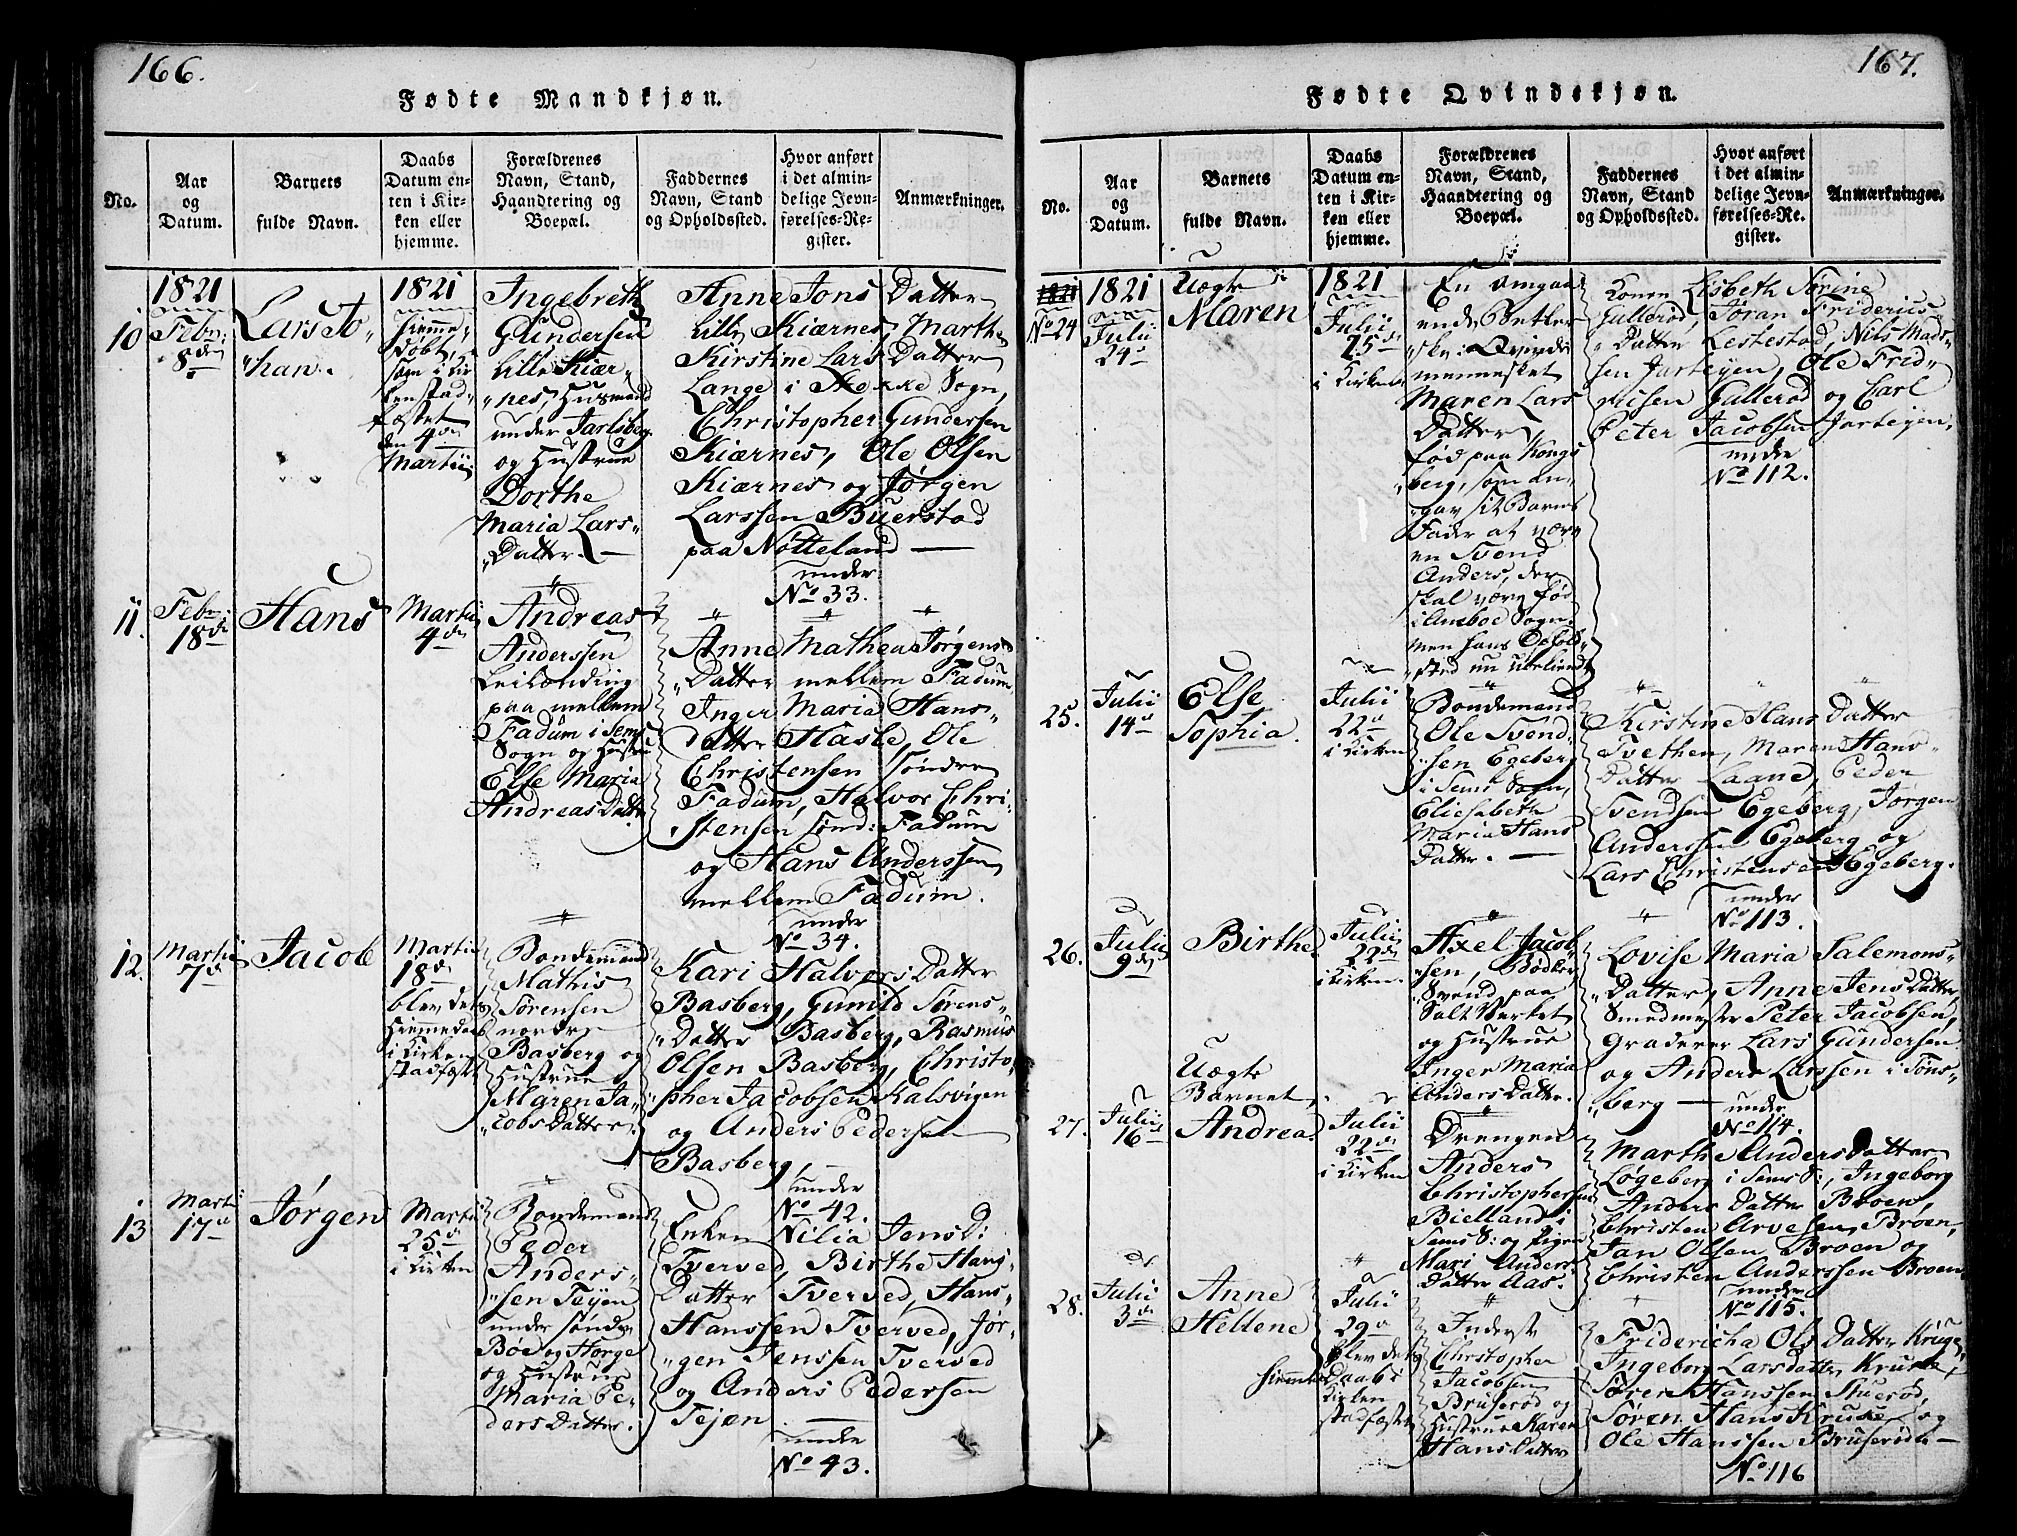 166.
Fødte Mandkjøn.
No.
Aar og Datum.
Barnets fulde Navn.
Daabs Datum enten i Kirken eller hjemme.
Forældrenes Navn, Stand, Haandtering og Boepæl.
Faddernes Navn, Stand og Opholdssted.
Hvor anført i det almindelige Jevnførelses-Register.
Anmærkninger.
1821
10
Febr:
8de
Lars Jo-
han.
1821
hjemme-
døbt,
Kir
kenstad-
fæstet
den 4de
Martii
Ingebreth
Gundersen
lille Kiær-
nes, Husmand
under Jarlsberg
og Hustrue
Dorthe
Maria Lars-
Datter.
Anne Jons Datter
lille Kiærnes, Marthe
Kirstine Lars Datter
Lange i Stokke Sogn,
Christopher Gundersen
Kiærnes, Ole Olsen
Kiærnes og Jørgen
Larssen Buerstad
paa Nøtteland
under
No 33.
11.
Febr:
18de
Hans
Martii
4de
Andreas
Anderssen
Leilænding
paa mellem
Fadum i Sems
Sogn og Hustrue
Else Maria
Andreas Datter
Anne Mathea Jørgens
Datter mellem Fadum
Inger Maria Hans-
datter Hasle, Ole
Christensen søndre
Fadum, Halvor Chri-
stensen sønd: Fadum
og Hans Anderssen
mellem Fadum.
under
No 34.
12.
Martii
7de
Jacob
Martii
18de
blev dets
Hiemmedaab
i Kirken
stadfæst
Bondemand
Mathis
Sørensen
nordre
Basberg og
Hustrue
Maren Ja-
cobs Datter.
Kari Halvors Datter
Basberg, Gunild Sørens-
Datter Basberg, Rasmus
Olsen Basberg, Christo-
pher Jacobsen Kalsvigen
og Anders Pedersen
Basberg,
under
No 42.
13
Martii
17de
Jørgen
Martii
25de
i Kirken
Bondemand
Peder
Anders-
sen Tejen
under søndre
Bøe og Horge
og Hustrue
Maria Pe-
ders Datter.
Enken Nilia Jens D:
Tverved, Birthe Hans-
Datter Tverved, Hans-
Hanssen Tverved, Jør-
gen Jenssen Tverved
og Anders Pedersen
Tejen.
under
No 43.
167.
Fødte Qvindekjøn.
No.
Aar og Datum.
Barnets fulde Navn.
Daabs Datum enten i Kirken eller hjemme.
Forældrenes Navn, Stand, Haandtering og Boepæl.
Faddernes Navn, Stand og Opholdssted.
Hvor anført i det almindelige Jevnførelses-Re.gister.
Anmærkninger.
1821
No 24
1821
Julii
24de
Uægte
Maren
1821
Julii
15de
i Kirken
En omgaa
ende Betler-
ske: Qvinde
mennesket
Maren Lars
Datter
fød paa Kongs
berg, som an-
gav sit Barns
Fader at være
en Svend
Anders, der
skal være fød
i Ameboe Sogn
men hans Ophold-
sted nu ubekiendt
Konen Lisbeth Sørine
Gullerød, Søran Friderics-
Datter Lestestad, Nils Mad-
sen Jarteyen, Ole Frid-
ricsen Gullerød og Carl
Peter Jacobsen Jarteyen.
under
No 112.
25.
Julii
14de
Else
Sophia.
Julii
22de
i Kirken
Bondemand
Ole Svend
sen Egeberg
i Sems Sogn,
Eliesabeth
Maria Hans
Datter.
Kirstine Hans Datter
Tvethen, Maren Hans-
Datter Laane, Peder
Svendsen Egeberg, Jørgen
Anderssen Egeberg og
Lars Christensen Egeberg.
under
No 113.
26.
Julii
9de
Birthe.
Julii
22de
i Kirken.
Axel Jacob
sen, Bødker
Svend paa
Salt Værket
og Hustrue
Inger Maria
Anders Datter.
Lovise Maria Salemons-
Datter, Anne Jens Datter,
Smedmester Peter Jacobsen,
Graderer Lars Gundersen
og Anders Larssen i Tøns-
berg
under
No 114.
27.
Julii
16de
Uægte
Barnet,
Andrea.
Julii
22de
i Kirken
Drengen
Anders
Christophersen
Bielland i
Sems S: og Pigen
Mari Anders
Datter Aas.
Marthe Anders Datter
Løgeberg i Sems S:, Ingeborg
Anders Datter Broen,
Christen Arvesen, Broen,
Jan Olsen, Broen og
Christen Anderssen Broen
under
No 115.
28.
Julii
3de
Anne
Hellene
Julii
29de
blev dets
hiemme Daabs
i Kirken
stadfæstet
Inderste
Christopher
Jacobsen
Bruserød og
Hustrue Karen
Hans Datter
Fridericha Ols Datter Kruge,
Ingeborg Larsdatter Kruse,
Søren Hanssen Stuerød,
Søren Hans Kruse og
Ole Hanssen Bruserød
No 116